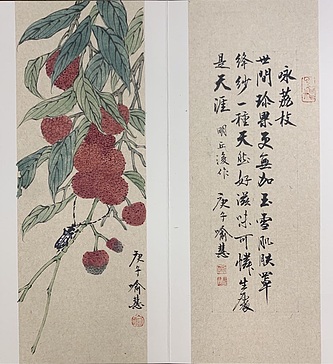 咏荔枝
世間珍果更無加玉雪肌肤罩
绛纱一種天然好滋味可憐生處
是天涯 明丘濬作 庚午喻慧
庚午喻慧